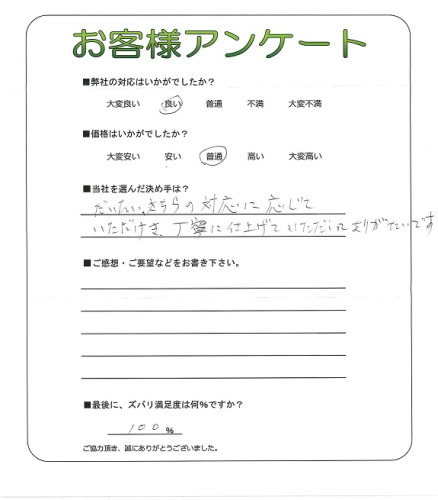 お客様アンケート
■弊社の対応はいかがでしたか？
大変良い 良い 普通 不満 大変不満
■価格はいかがでしたか？
大変安い 安い 普通 高い 大変高い
■当社を選んだ決め手は？
だいたい、こちらの対応に応じて
いただけき、丁寧に仕上げていただいてありがたいです
■ご感想・ご要望などをお書き下さい。
■最後に、ズバリ満足度は何%ですか？
100 %
ご協力頂き、誠にありがとうございました。